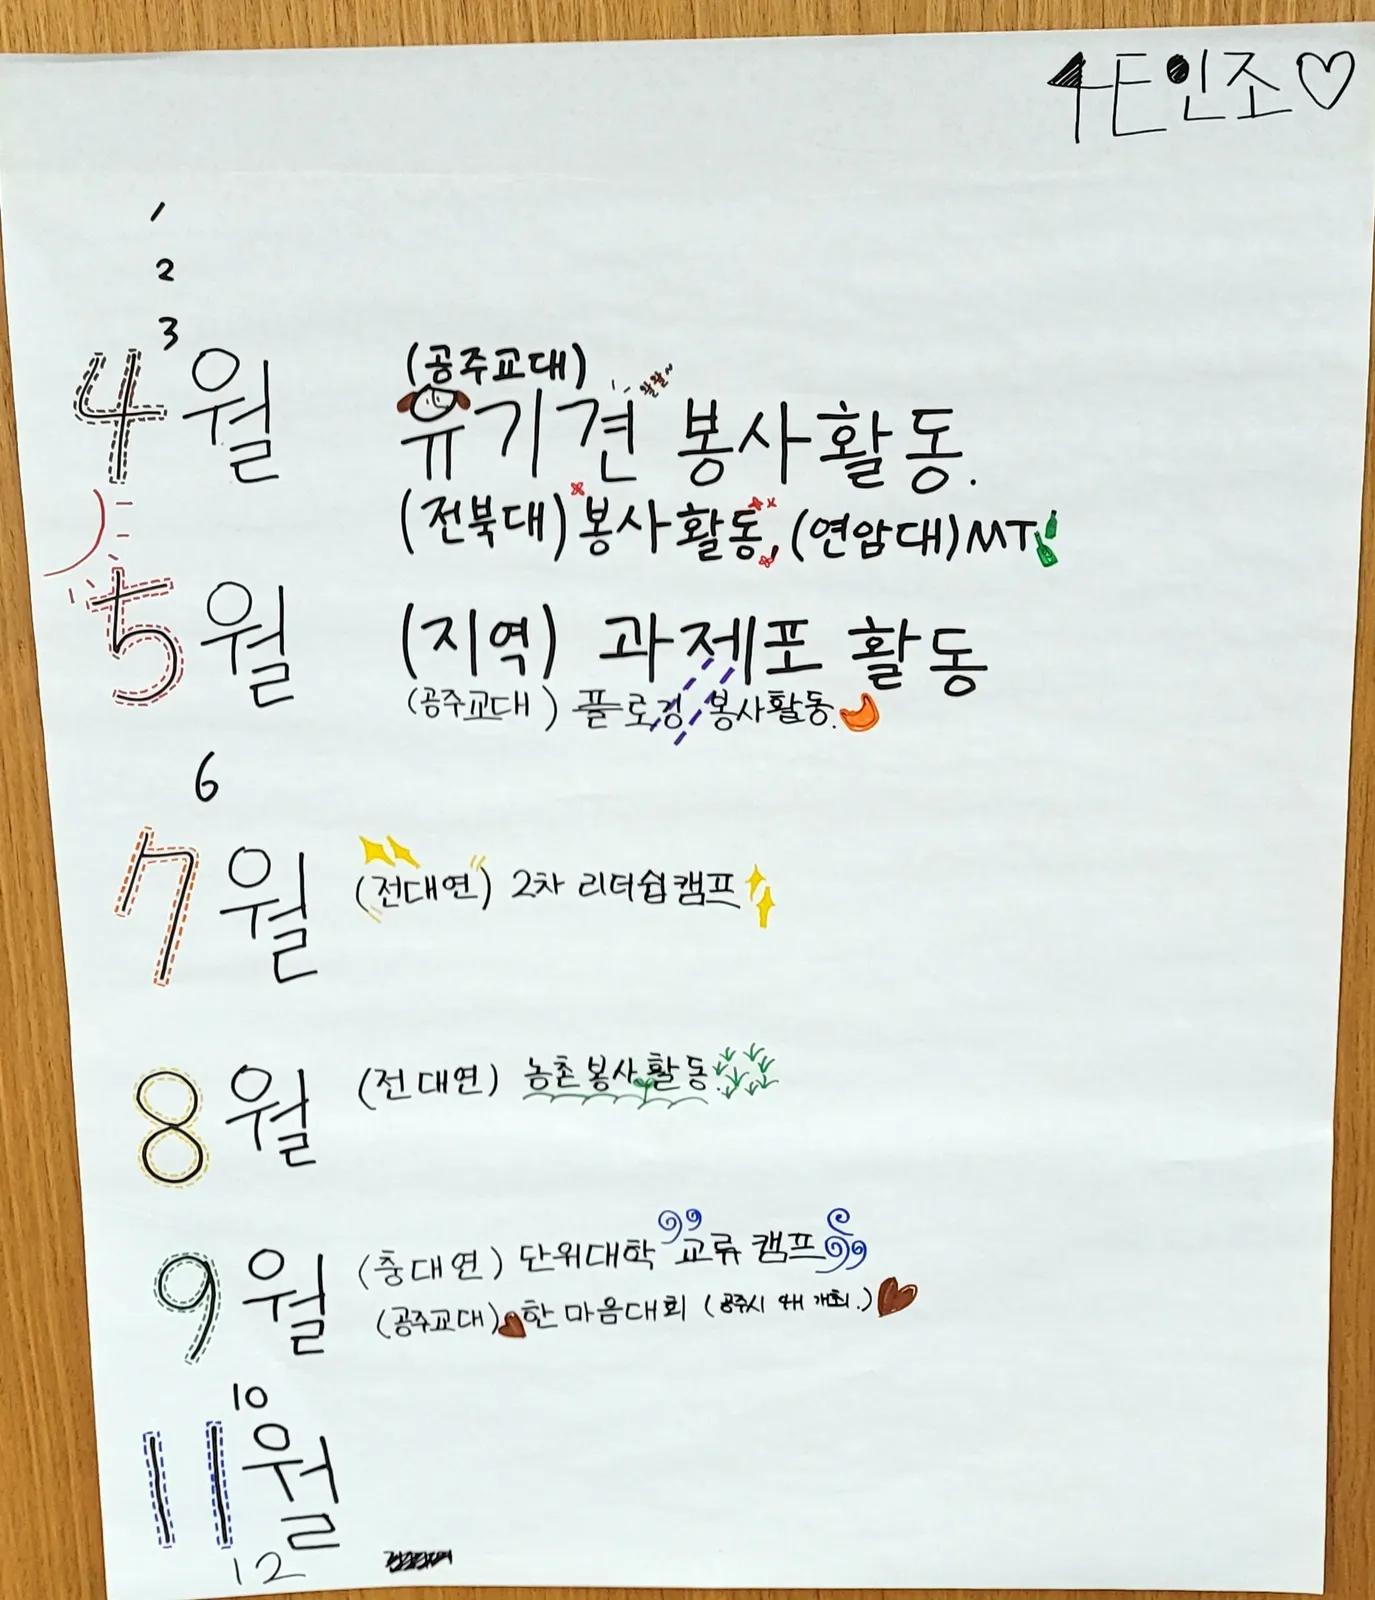 4E인조♡
1
2
3
4월
(공주교대)
유기견 봉사활동.
왈왈~
(전북대) 봉사활동, (연암대) MT
5월
(지역) 과제포 활동
(공주교대) 플로깅 봉사활동.
6
7월
(전대연) 2차 리더쉽캠프
8월
(전대연) 농촌봉사활동.
9월
(충대연) 단위대학 교류 캠프
(공주교대) 한마음대회 (공주시 내 개최.)
10
11월
12